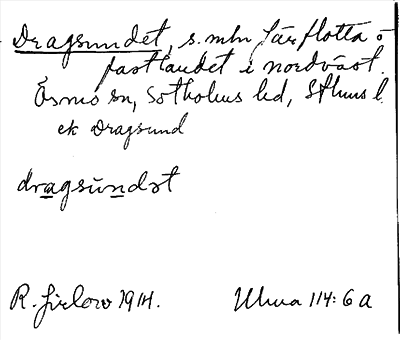 Dragsundet, s. mln Järflotta o
fastlandet i nordväst.
Ösmo sn, Sotholms hd, Sthlms l.
ek Dragsund
dragsùndət
R. Jirlow 1914.
Ulma 114:6 a